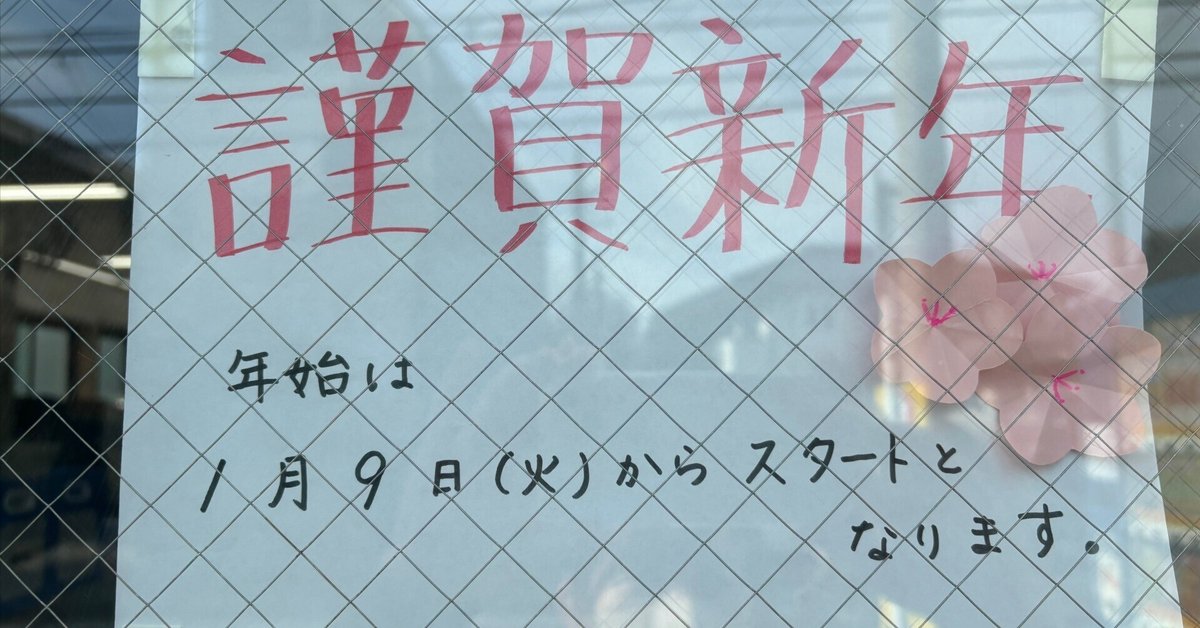 謹賀新年
年始は
1月9日(火)からスタートと
なります。